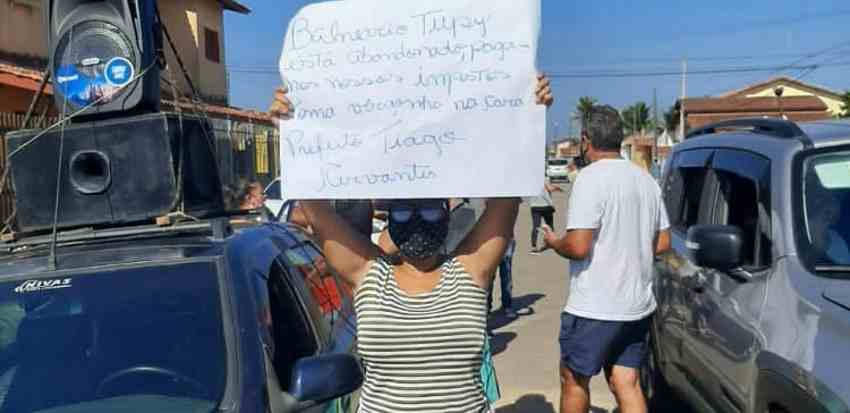 Balneario Tupy
está abandonado, paga-
mos nossos impostos
toma vergonha na cara
Prefeito Tiago
Cervantes
NIVAS